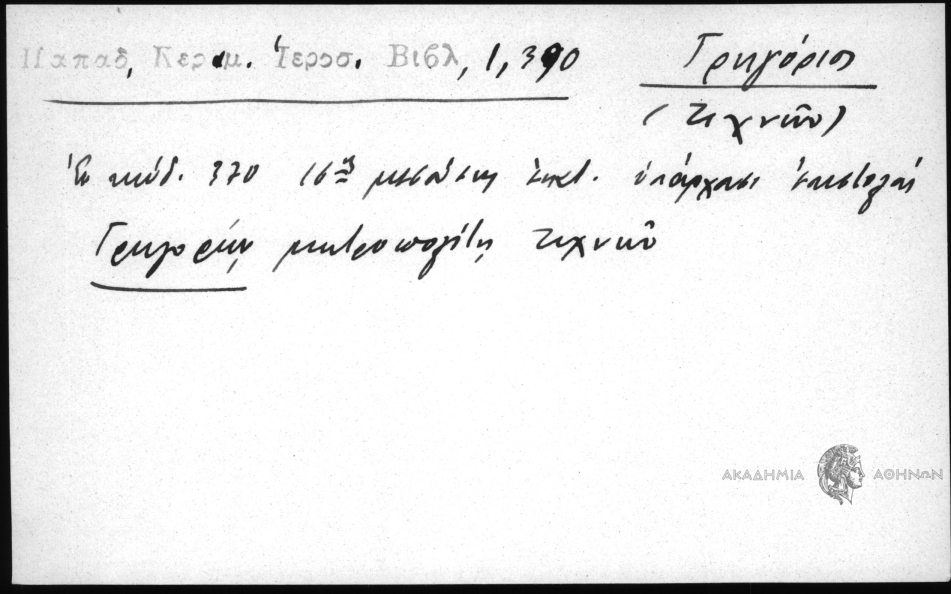 Παπαδ, Κεραμ. Ἱεροσ. Βιβλ, 1, 390
Γρηγόριος
(τεχνῶν)
Ἐν κώδ. 370 16ης ἑκατ. ὑπάρχουσι ἐπιστολαὶ
Γρηγορίου μητροπολίτης τεχνῶν
ΑΚΑΔΗΜΙΑ ΑΘΗΝΩΝ